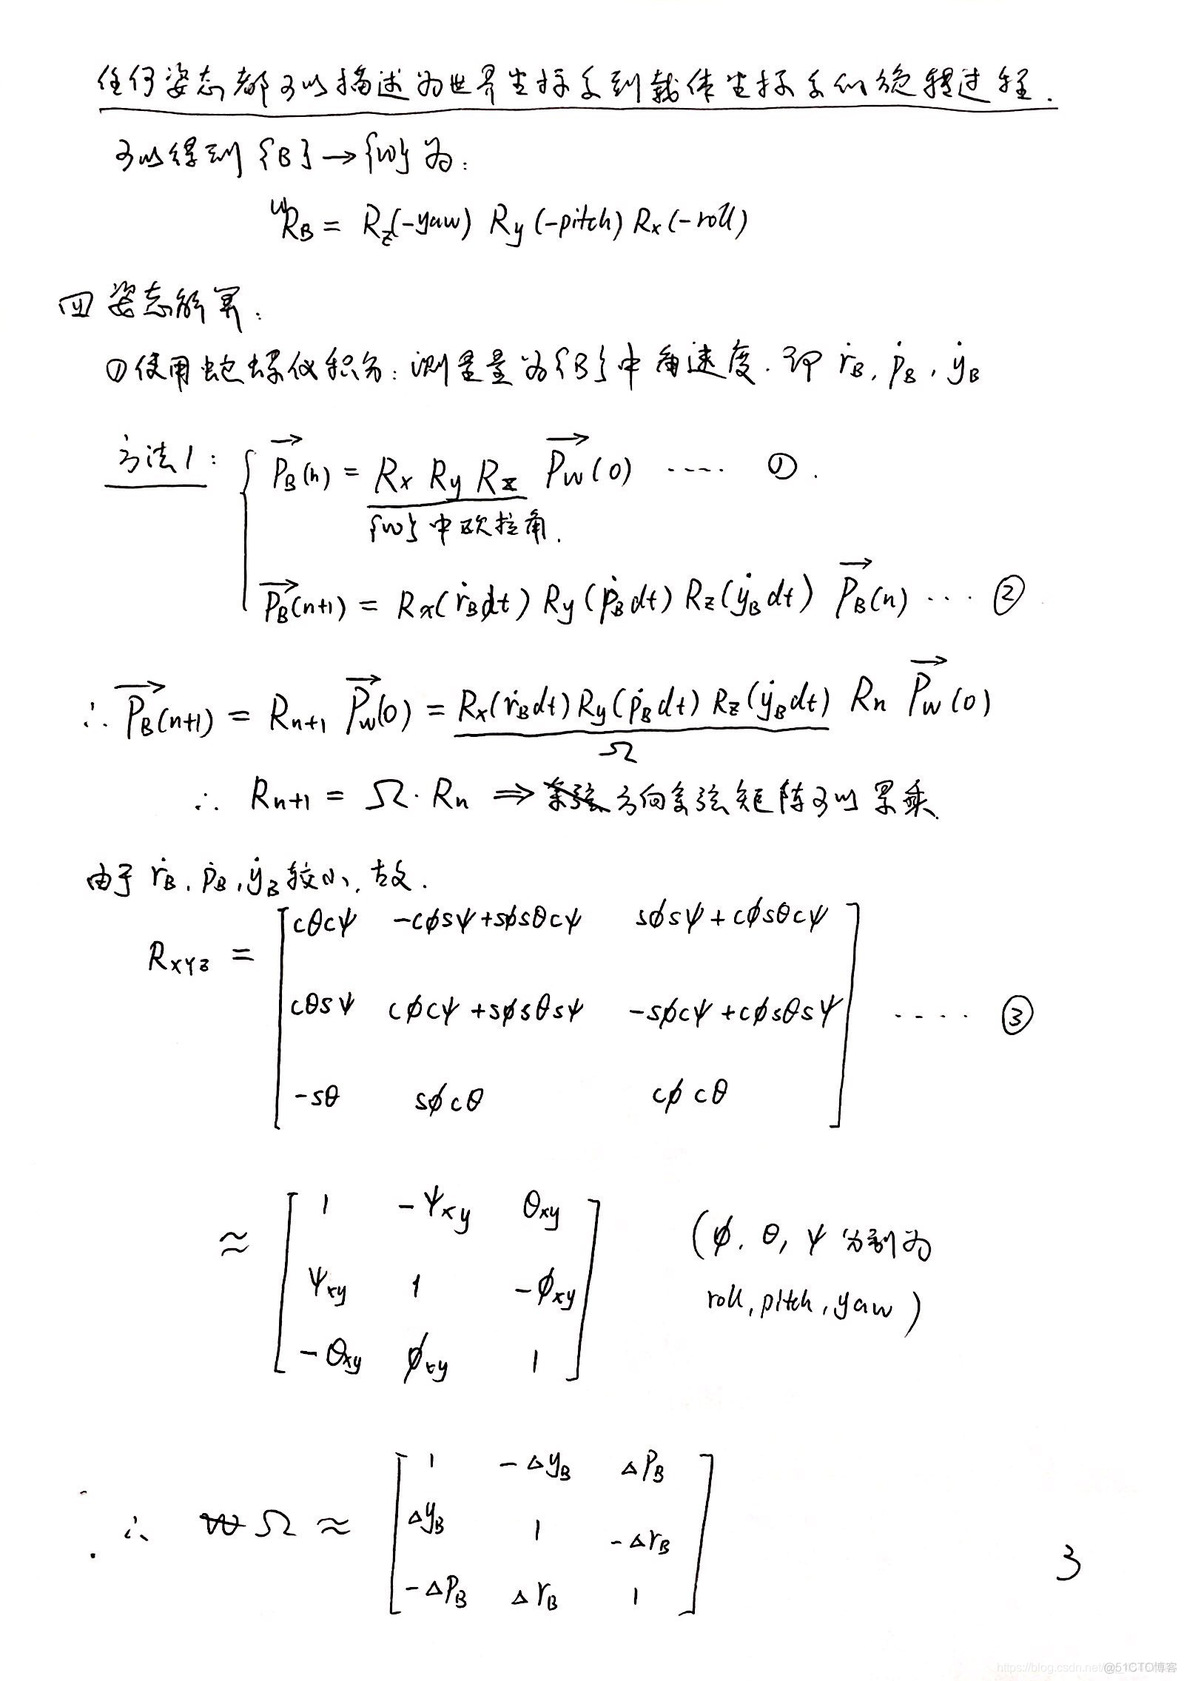 任何姿态都可以描述为世界坐标系到载体坐标系的旋转过程.
可以得到{B}→{W}为:
ᵂR_B = R_z(-yaw) R_y(-pitch) R_x(-roll)
四 姿态解算:
① 使用陀螺仪积分: 测量量为{B}中角速度. 即 ṙ_B, ṗ_B, ẏ_B
方法1: P_B(n) = R_x R_y R_z P_W(0) ···· ①.
{W}中欧拉角.
P_B(n+1) = R_x(ṙ_B dt) R_y(ṗ_B dt) R_z(ẏ_B dt) P_B(n) ··· ②
∴ P_B(n+1) = R_n+1 P_W(0) = R_x(ṙ_B dt) R_y(ṗ_B dt) R_z(ẏ_B dt) R_n P_W(0)
Ω
∴ R_n+1 = Ω·R_n ⇒ 方向余弦矩阵可以累乘.
由于 ṙ_B, ṗ_B, ẏ_B 较小, 故.
cθcψ -cφsψ+sφsθcψ sφsψ+cφsθcψ
R_XYZ =
cθsψ cφcψ+sφsθsψ -sφcψ+cφsθsψ ···· ③
-sθ sφcθ cφcθ
1 -ψ_xy θ_xy
≈ (φ, θ, ψ 分别为
ψ_xy 1 -φ_xy
roll, pitch, yaw)
-θ_xy φ_xy 1
1 -Δy_B Δp_B
∴ Ω ≈ Δy_B 1 -Δr_B
3
-Δp_B Δr_B 1
https://blog.csdn.net/
@51CTO博客